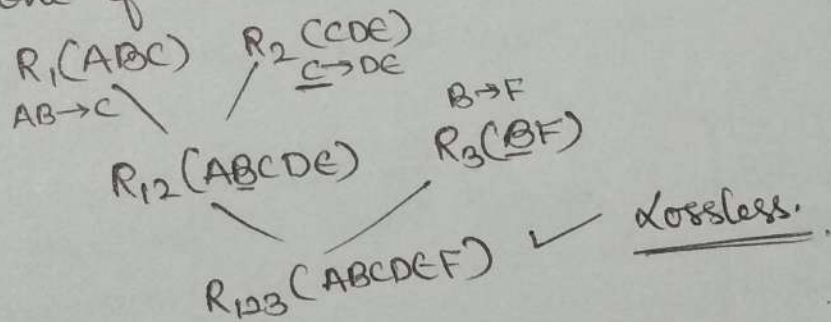 one of
R₁(ABC) R₂(CDE)
AB→C C→DE
B→F
R₁₂(ABCDE) R₃(BF)
R₁₂₃(ABCDEF) ✓ Lossless.